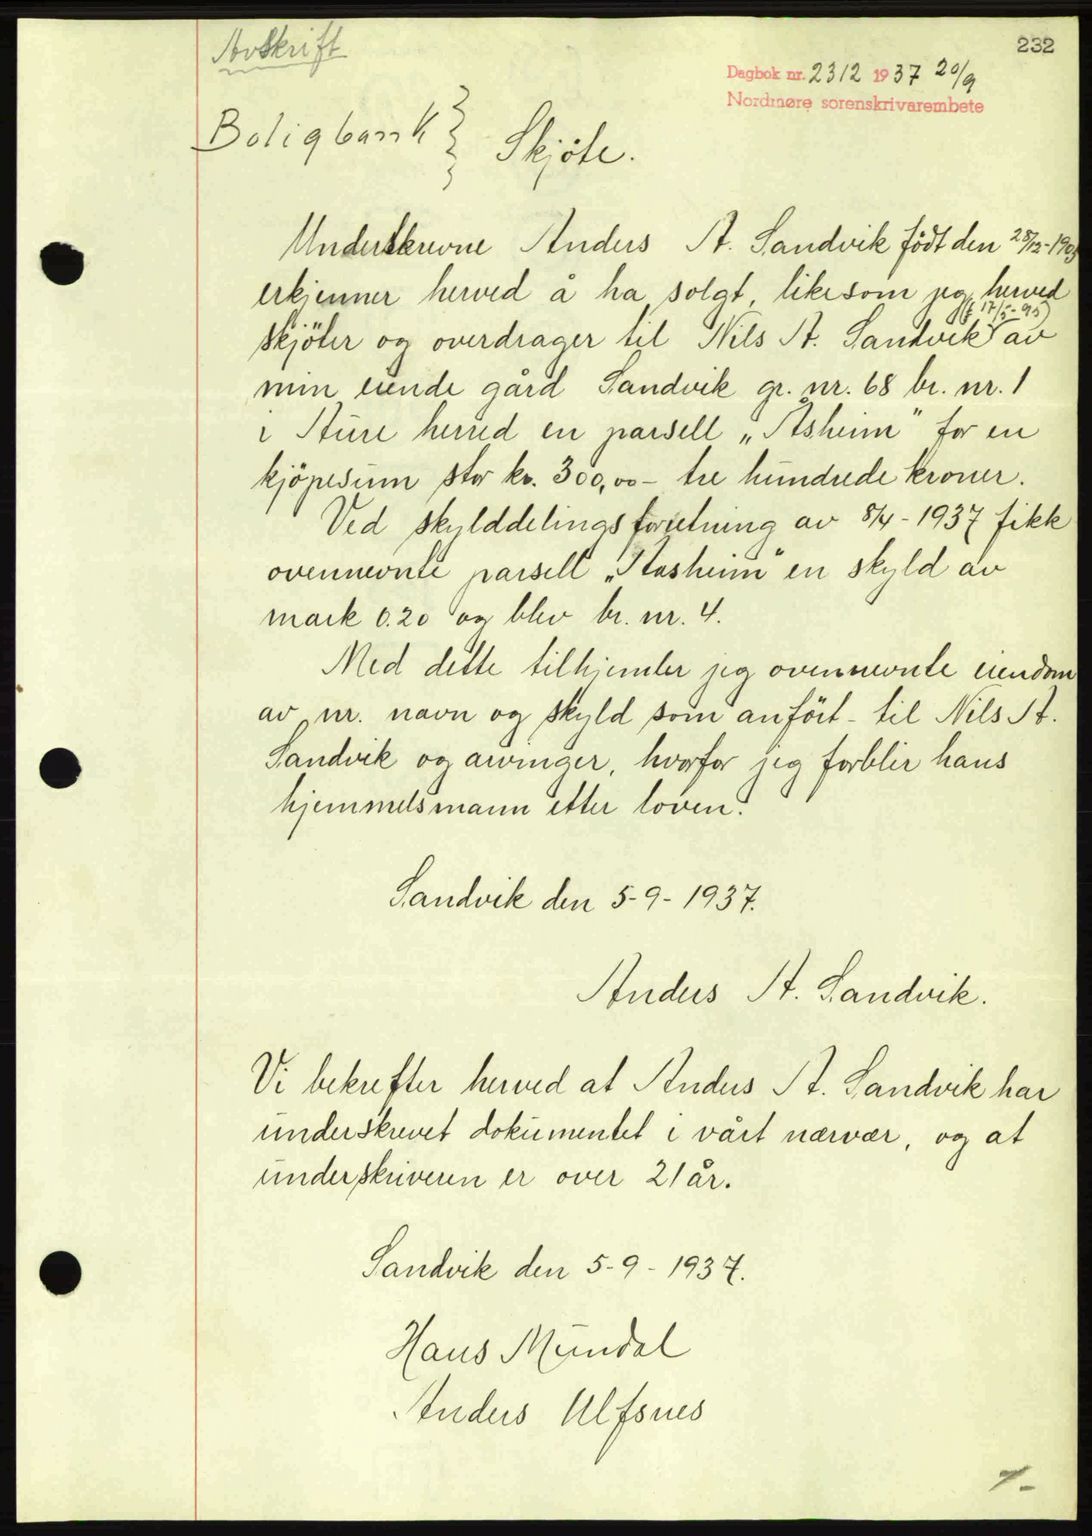 Avskrift
232
Dagbok nr. 2312 1937 20/9
Nordmøre sorenskrivarembete
Boligbank } Skjöte.
Underskrevne Anders A. Sandvik födt den 28/12-1903
erkjenner herved å ha solgt, likesom jeg herved
(f 17/5-95)
skjöter og overdrager til Nils A. Sandvik av
min eiende gård Sandvik gr. nr. 68 br. nr. 1
i Aure herred en parsell „Åsheim" for en
kjöpesum stor kr. 300,00 - tre hundrede kroner.
Ved skylddelingsforretning av 8/4 - 1937 fikk
ovennevnte parsell „Aasheim" en skyld av
mark 0.20 og blev br. nr. 4.
Med dette tilhjemler jeg ovennevnte eiendom
av nr. navn og skyld som anfört - til Nils A.
Sandvik og arvinger, hvorfor jeg forblir hans
hjemmelsmann etter loven.
Sandvik den 5-9-1937.
Anders A. Sandvik.
Vi bekrefter herved at Anders A. Sandvik har
underskrevet dokumentet i vårt nærvær, og at
underskriveren er over 21 år.
Sandvik den 5-9-1937.
Hans Mundal
Anders Ulfsnes